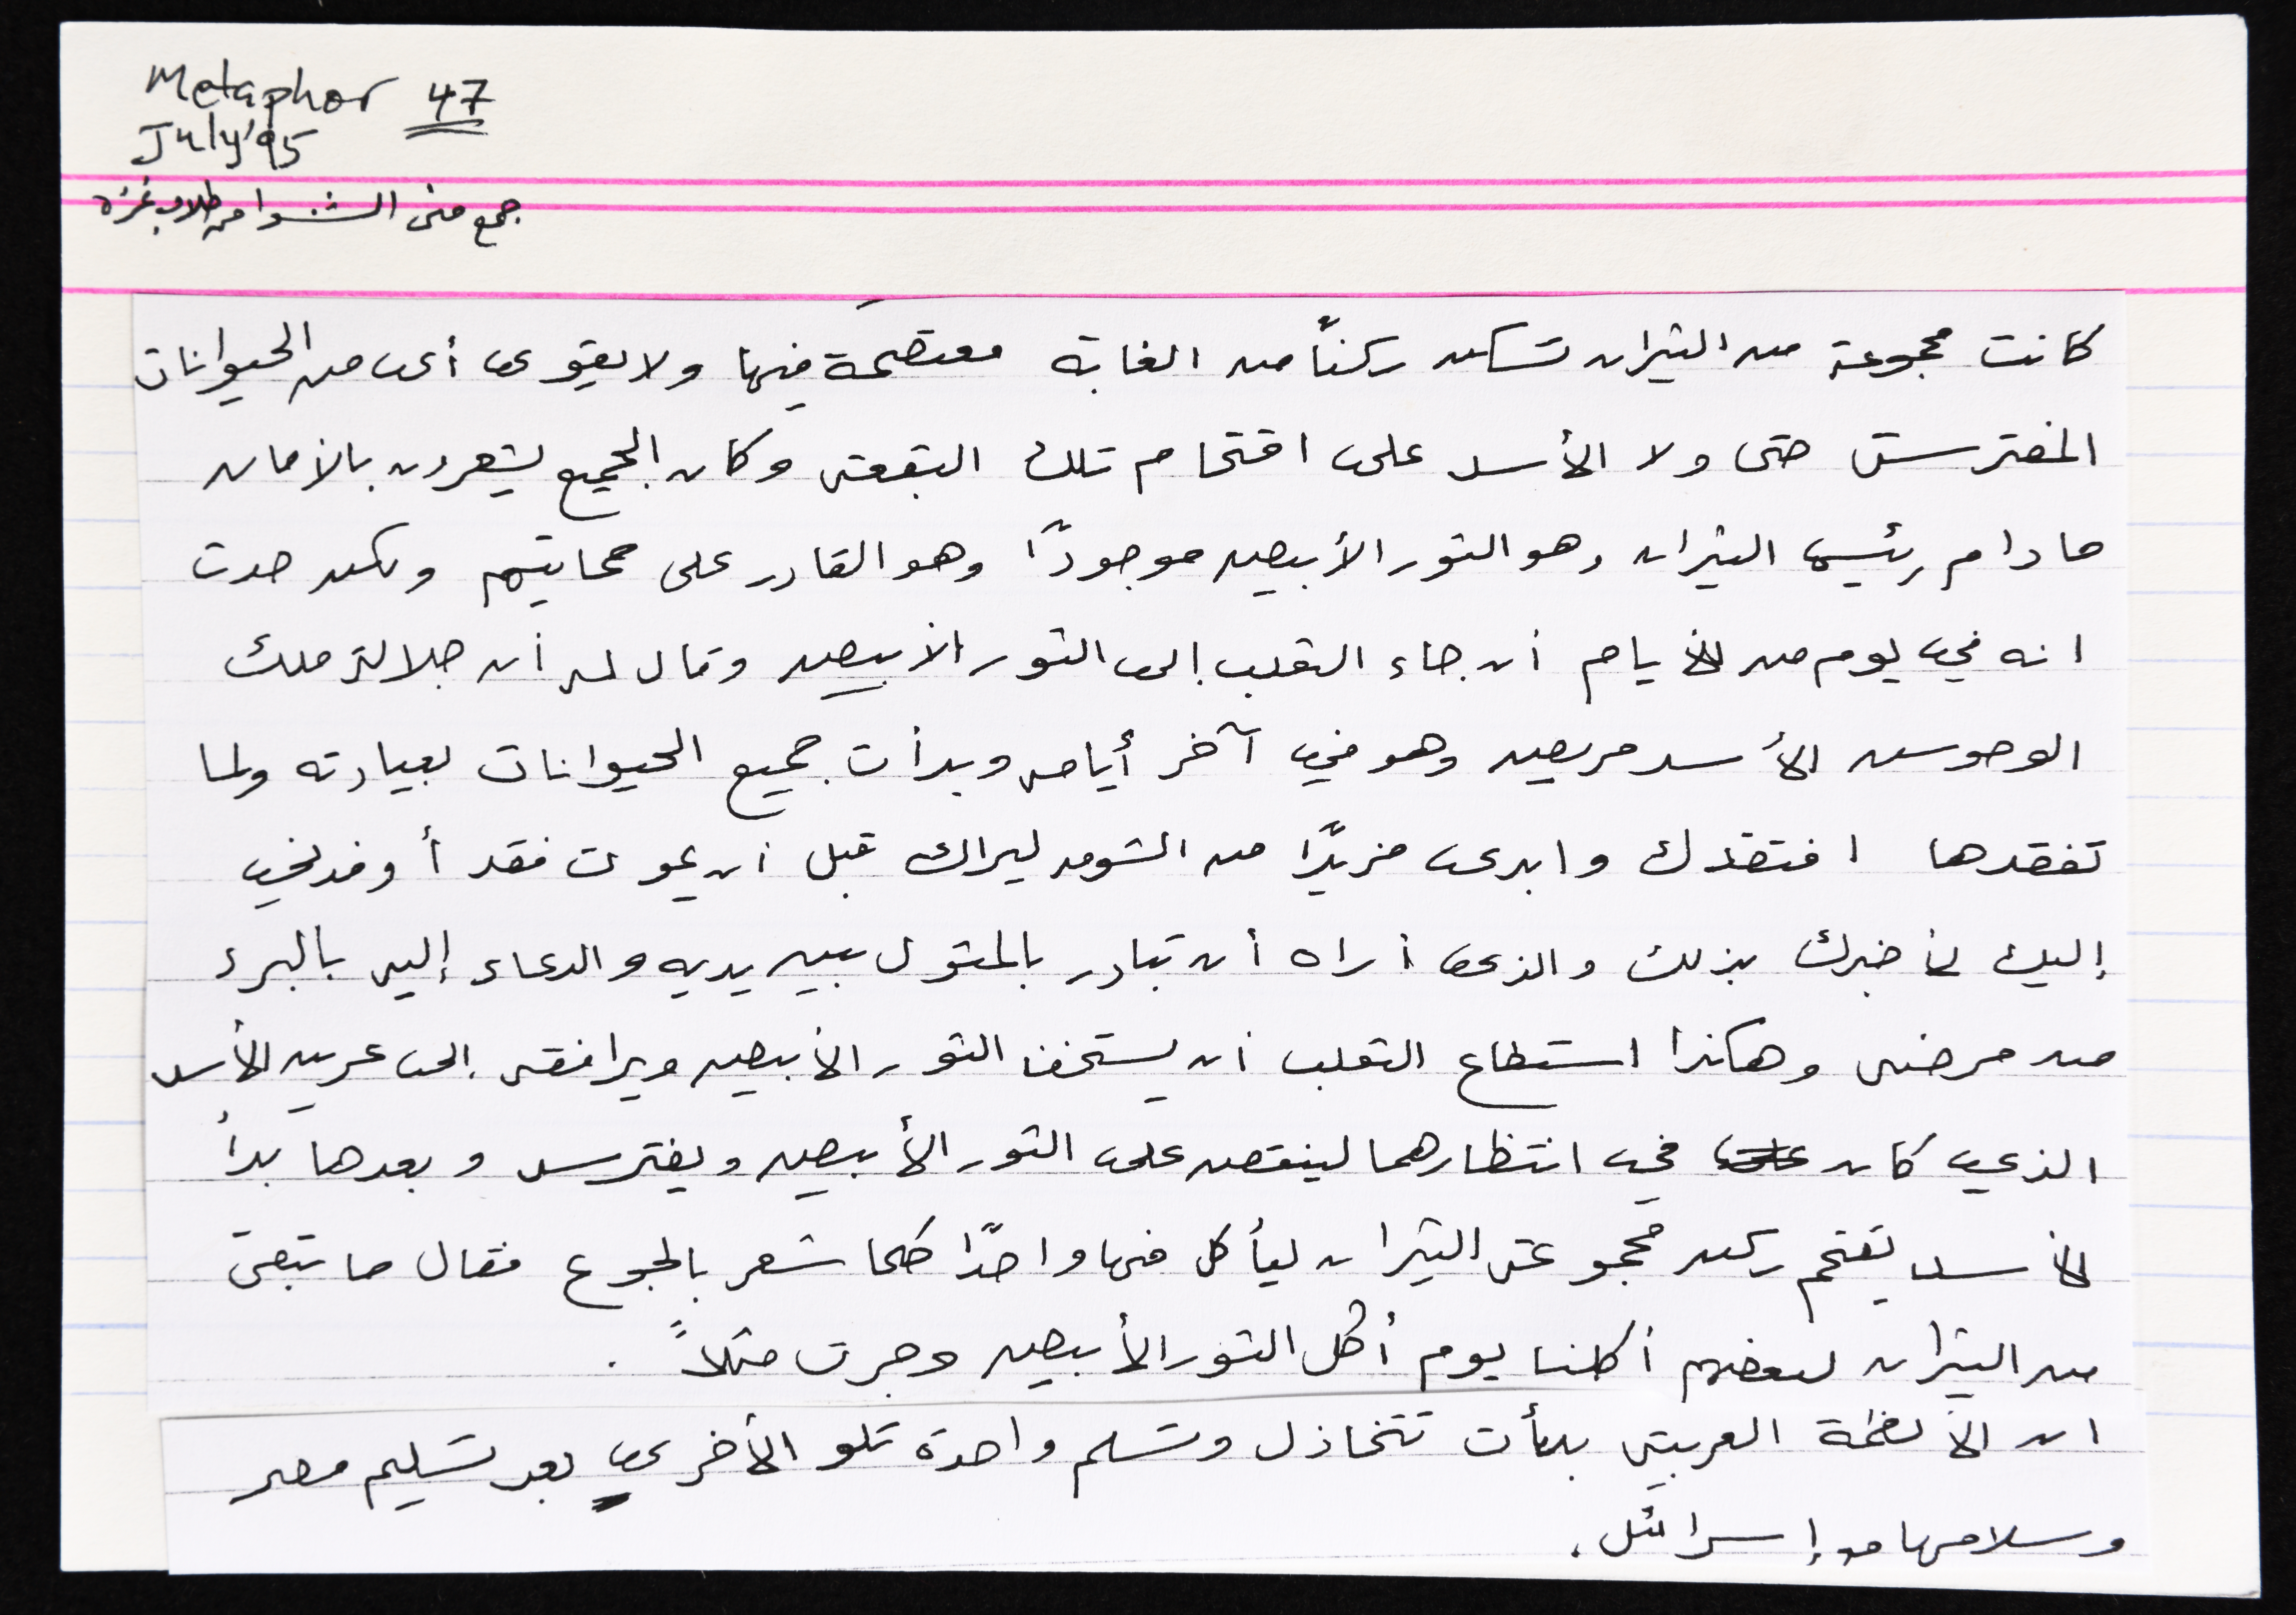 Metaphor 47
July'95
جمع منى الشوا من طلاب غزة
كانت مجموعة من الثيران تسكن ركنًا من الغابة معتصمة فيها ولا يقوى أي من الحيوانات
المفترسة حتى ولا الأسد على اقتحام تلك البقعة وكان الجميع يشعرون بالأمان
ما دام رئيس الثيران وهو الثور الأبيض موجودًا وهو القادر على حمايتهم ولكن حدث
انه في يوم من الأيام أن جاء الثعلب إلى الثور الأبيض وقال له أن جلالة ملك
الوحوش الأسد مريض وهو في آخر أيامه وبدأت جميع الحيوانات بعيادته ولما
تفقدها افتقدك وابدى مزيدًا من الشوق ليراك قبل أن يموت فقد أوفدني
إليك لأخبرك بذلك والذي أراه أن تبادر بالمثول بين يديه والدعاء إليه بالبرء
من مرضه وهكذا استطاع الثعلب أن يستخف الثور الأبيض ويرافقه إلى عرين الأسد
الذي كان في انتظارهما لينقض على الثور الأبيض ويفترسه وبعدها بدأ
الأسد يقتحم ركن مجموعة الثيران ليأكل منها واحدًا كلما شعر بالجوع فقال ما تبقى
من الثيران لبعضهم أكلنا يوم أُكل الثور الأبيض وجرت مثلاً .
ان الأنظمة العربية بدأت تتخاذل وتسلم واحدة تلو الأخرى بعد تسليم مصر
وسلامها مع إسرائيل .